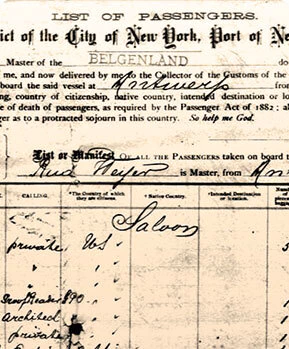 LIST OF PASSENGERS.
ict of the City of New York, Port of Ne
Master of the BELGENLAND do
me, and now delivered by me to the Collector of the Customs of the
board the said vessel at Antwerp from
ing, country of citizenship, native country, intended destination or lo
e of death of passengers, as required by the Passenger Act of 1882; al
ger as to a protracted sojourn in this country. So help me God.
List or Manifest OF ALL THE PASSENGERS taken on board t
is Master, from An
CALLING. The Country of which they are citizens. Native Country. Intended Destination or location.
Saloon
private US
architect
private